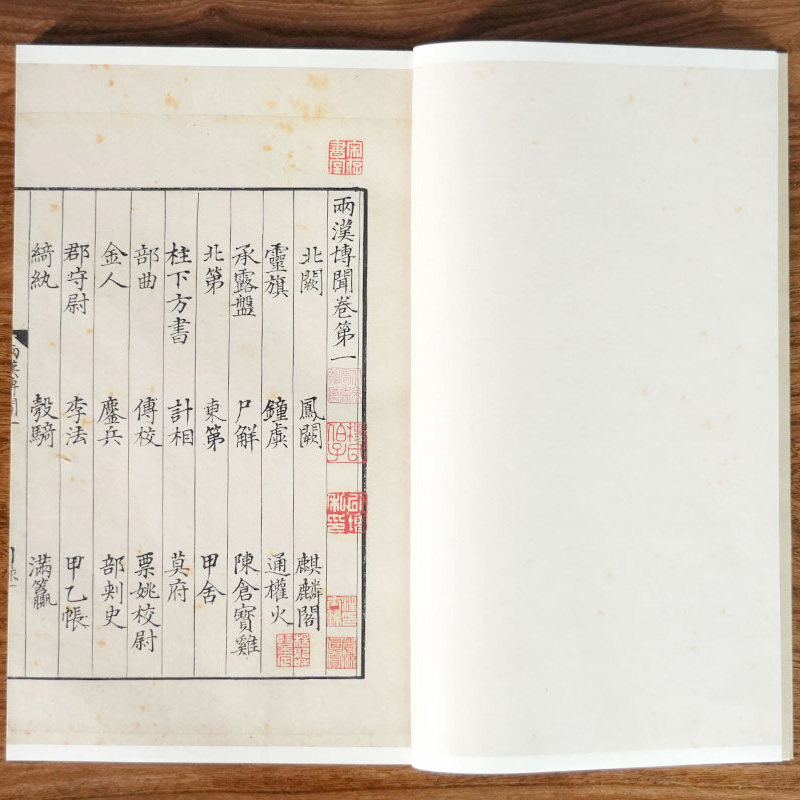 兩漢博聞卷第一
北闕 鳳闕 麒麟閣
靈旗 鐘虡 通權火
承露盤 尸解 陳倉寶雞
北第 東第 甲舍
柱下方書 計相 莫府
部曲 傳校 票姚校尉
金人 鏖兵 部刺史
郡守尉 李法 甲乙帳
綺紈 彀騎 滿籯